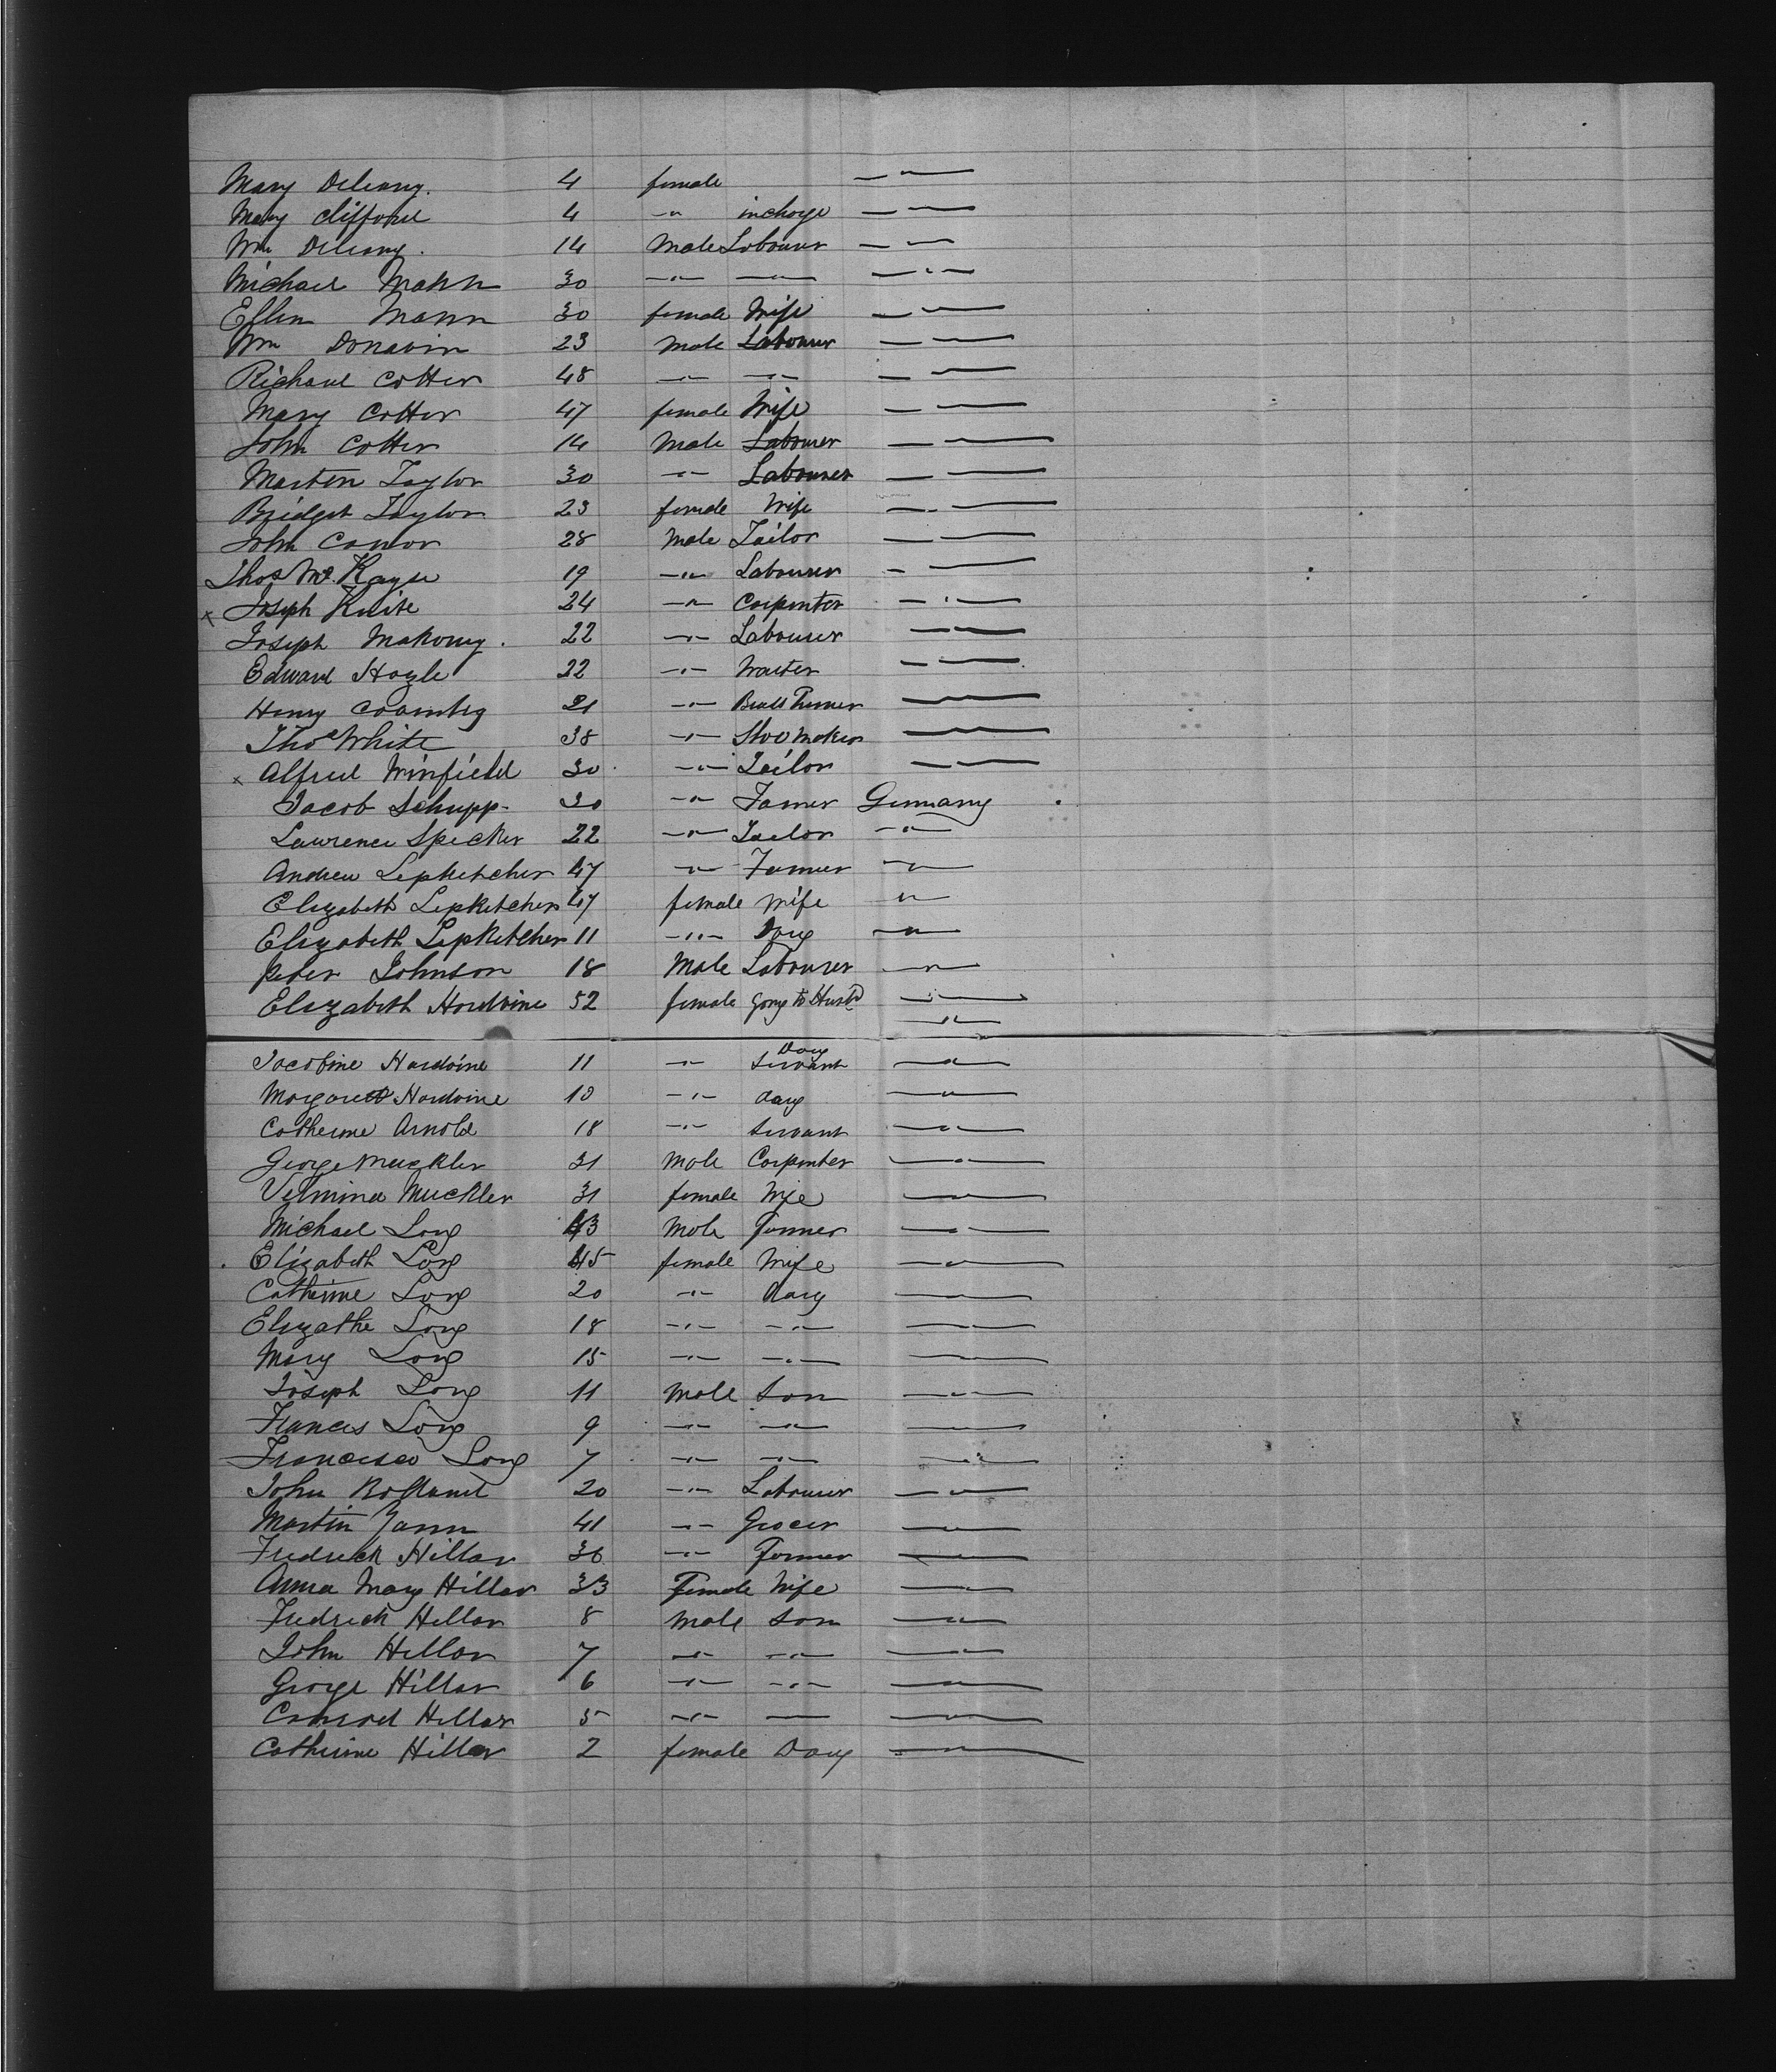 Mary Deleany. 4 female — " —
Mary Clifford 4 — " — incharge — " —
Wm Deleany. 14 Male Labourer — " —
Michael Mann 30 — " — — " — — " —
Ellen Mann 30 female Wife — " —
Wm Donavin 23 Male Labourer — " —
Richard Cotter 48 — " — — " — — " —
Mary Cotter 47 female Wife — " —
John Cotter 14 Male Labourer — " —
Martin Taylor 30 — " — Labourer — " —
Bridget Taylor 23 female Wife — " —
John Connor 28 Male Tailor — " —
Thos Mc Kayse 19 — " — Labourer — " —
x Joseph Knite 24 — " — Carpenter — " —
Joseph Mahony. 22 — " — Labourer — " —
Edward Hoyle 22 — " — Waiter — " —
Henry 21 — " — — " —
Thos White 38 — " — Shoemaker — " —
x Alfred Winfield 30 — " — Tailor — " —
Jacob Schupp 30 — " — Famer Germany
Lawrence Specker 22 — " — Tailor — " —
Andrew Lepketcher 47 — " — Farmer — " —
Elizabeth Lepketcher 47 female Wife — " —
Elizabeth Lepketcher 11 — " — Daug — " —
Peter Johnson 18 Male Labourer — " —
Elizabeth Hordvine 52 female Gong to Husbd — " —
— " —
Jacobine Hardvine 11 — " — Daug Servant — " —
Margarett Hardvine 10 — " — daug — " —
Catherine Arnold 18 — " — Servant — " —
George Muckler 31 Male Carpenter — " —
Velmina Muckler 31 female Wife — " —
Michael Long 43 Male Farmer — " —
Elizabeth Long 45 female Wife — " —
Catherine Long 20 — " — Daug — " —
Elizathe Long 18 — " — — " — — " —
Mary Long 15 — " — — " — — " —
Joseph Long 11 Male Son — " —
Frances Long 9 — " — — " — — " —
Francisco Long 7 — " — — " — — " —
John 20 — " — Labourer — " —
Martin Yann 41 — " — Grocer — " —
Fredrick Hillar 36 — " — Farmer — " —
Anna Mary Hillar 33 Female Wife — " —
Fredrick Hillar 8 Male Son — " —
John Hillar 7 — " — — " — — " —
George Hillar 6 — " — — " — — " —
Conrad Hillar 5 — " — — — " —
Catherine Hillar 2 female Daug — " —